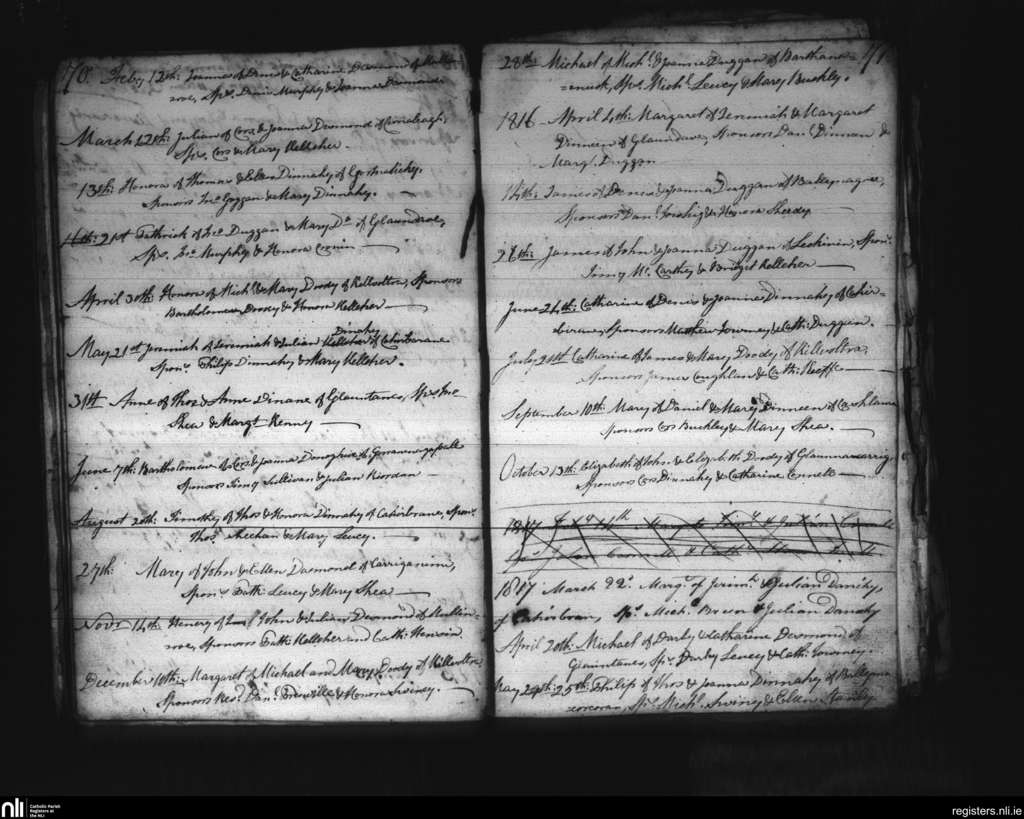 70. Feby. 12th: Joannes of Denis & Catharine Desmond of
rove, Sprs. Denis Murphy & Joanna Desmond.
March 12th. Julian of Cors & Joanna Desmond of Comaleagh,
Sprs. Cors & Mary Kelleher
13th: Honora of Thomas & Ellen Dinnahy of
Sponsors Jno. Goggan & Mary Dinnahy.
16th: 21st Patrick of Jno. Duggan & Mary Do. of Glaundroe,
Sprs. Jno. Murphy & Honora Cronin
April 30th Honora of Michl. & Mary Doody of Killvoltra, Sponsors
Bartholomew Doody & Honora Kelleher
Dinnahy
May 21st Jeremiah of Jeremiah & Julian Kelleher of Cahirbarane
Sponrs. Philip Dinnahy & Mary Kelleher.
31st Anne of Thos. & Anne Dinane of Glauntanes, Sprs. Jno.
Shea & Margt. Kenny
June 7th: Bartholomew of Cors & Joanna Donoghue of
Sponsors Jimy Sullivan & Julian Riordan
August 20th: Timothy of Thos & Honora Dinnahy of Cahirbrane, Sponrs.
Thos. Sheehan & Mary Lucey.
27th: Mary of John & Ellen Desmond of Carriganimi,
Sponrs. Patk: Leucy & Mary Shea
Novr 14th: Henery of John & Julian Desmond of
rove, Sponsors Patk Kelleher and Cath:
December 10th: Margaret of Michael and Mary Doody of Killvoltra,
Sponsors Revd. Danl. & Honora Sviney.
28th: Michael of Michl. & Joanna Duggan of
Sprs. Michl. Leucy & Mary Buckly.
1816 April 4th: Margaret of Jeremiah & Margaret
Dinneen of Glaundave, Sponsors Danl. Dinneen &
Margt. Duggan
14th: James of Denis & Joanna Duggan of Ballymagree,
Sponsors Danl. & Honora Sheedy
26th: James of John & Joanna Duggan of Leckinin, Sponrs.
Jimy Mc. Carthy & Bridget Kelleher
June 24th: Catharine of Denis & Joanna Dinnahy of Cahir-
Sponsors Mathew Twomey & Cath: Duggan.
July 21st Catharine of James & Mary Doody of Killvoltra,
Sponsors James Coughlan & Cath: Keeffe
September 10th Mary of Daniel & Mary Dinneen of
Sponsors Cors Buckley & Mary Shea.
October 13th: Elizabeth of John & Elizabeth Doody of Glaunacarrig
Sponsors Cors Dinnahy & Catharine Connell
1817 14th Mary &
John Connell & Cath:
1817 March 22d. Margt. of Jerimh. & Julian Danihy,
of Cahirbran, Sps. Michl. Breen & Julian Danihy
April 20th: Michael of Darby & Catharine Desmond of
Glauntanes, Sps. Darby Leucy & Cath: Twomey.
May 24th: 25th: Philip of Thos & Joanna Dinnahy of
corcoran, Sps. Michl. Sviny & Ellen
nli
Catholic Parish
Registers at
the NLI
registers.nli.ie